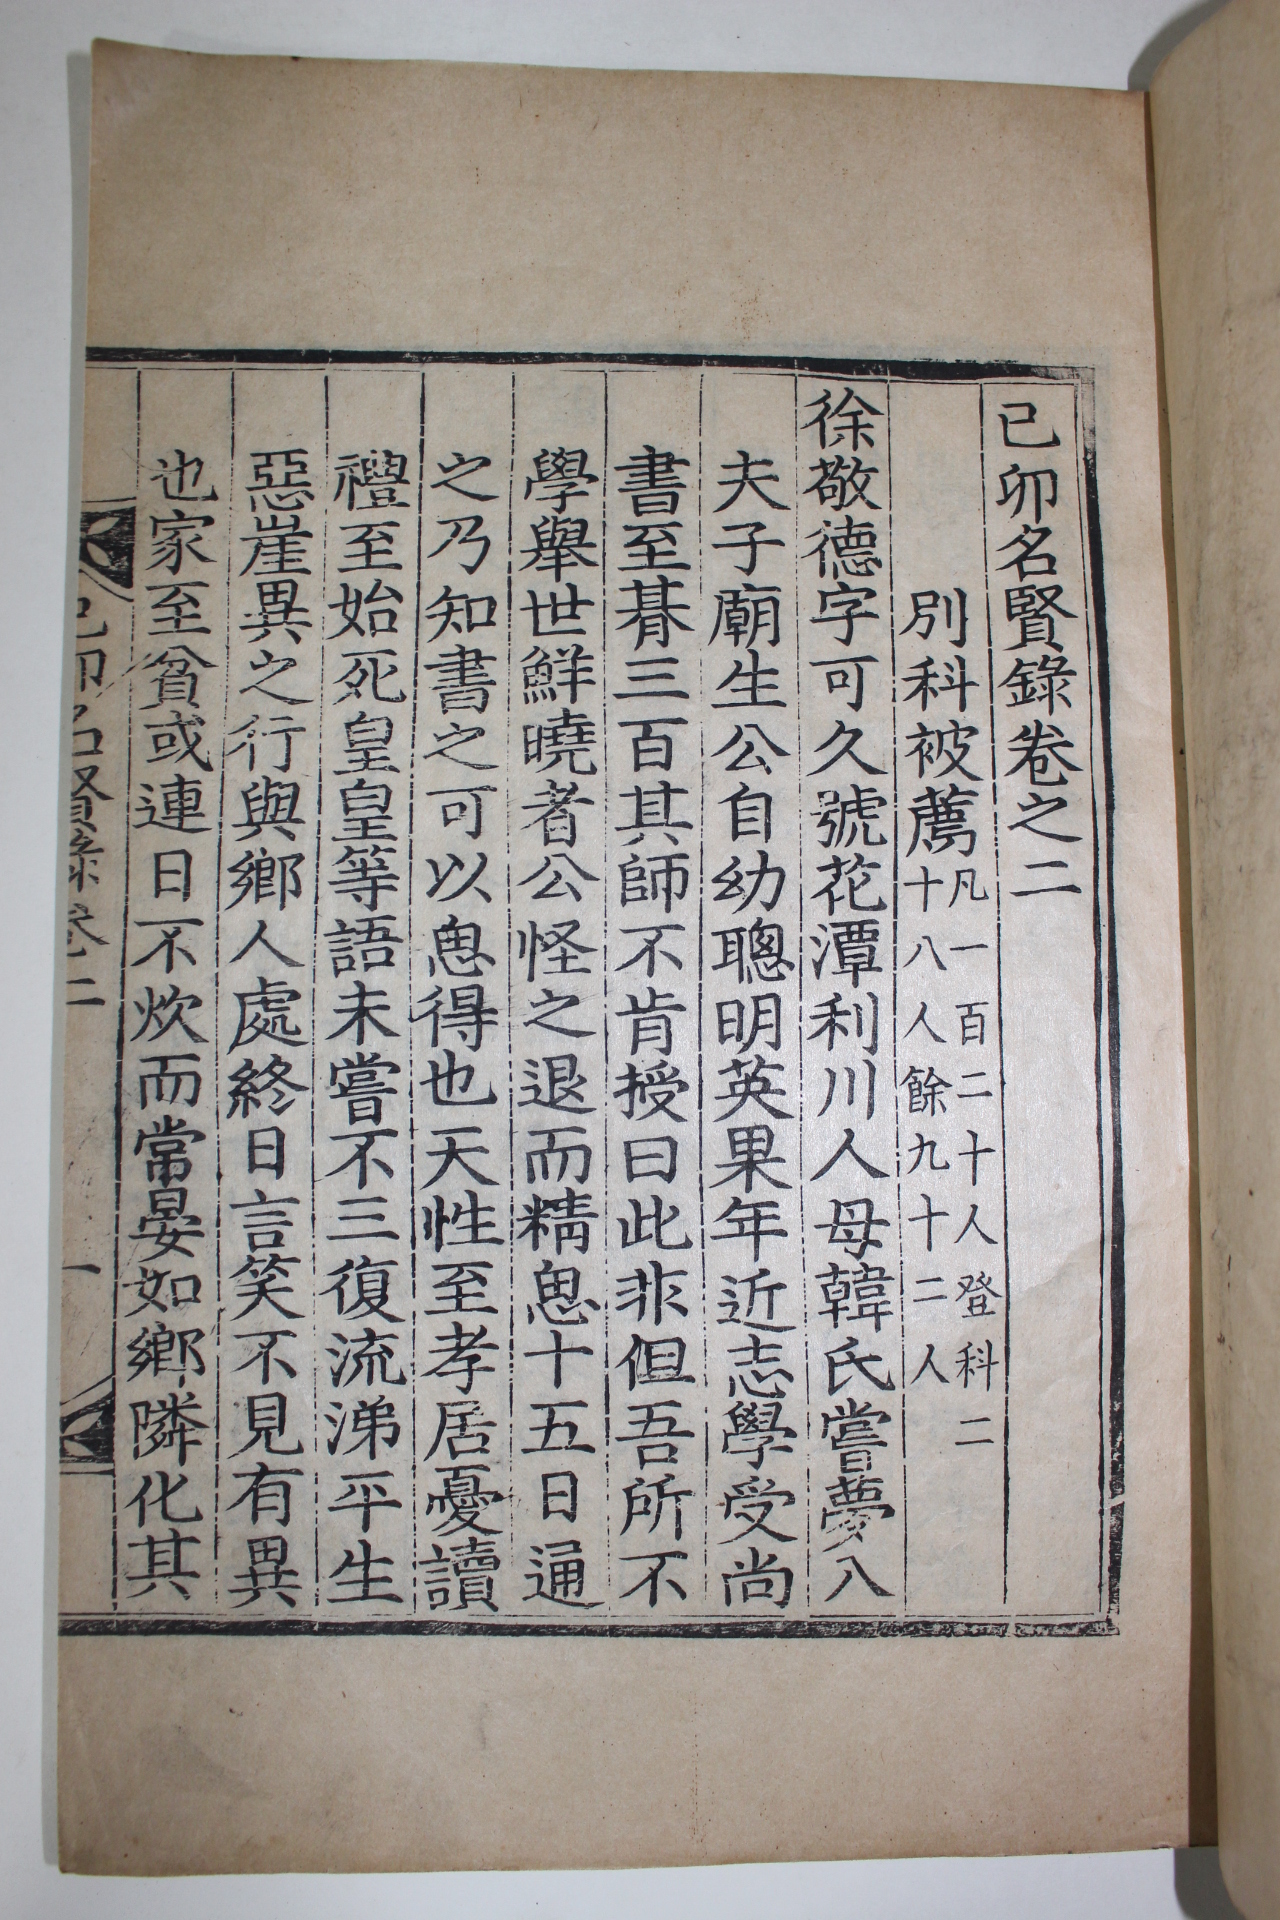 已卯名賢錄卷之二
別科被薦凡一百二十人登科二
十八人餘九十二人
徐敬德字可久號花潭利川人母韓氏嘗夢入
夫子廟生公自幼聰明英果年近志學受尚
書至朞三百其師不肯授曰此非但吾所不
學舉世鮮曉者公怪之退而精思十五日通
之乃知書之可以思得也天性至孝居憂讀
禮至始死皇皇等語未嘗不三復流涕平生
惡崖異之行與鄉人處終日言笑不見有異
也家至貧或連日不炊而常晏如鄉隣化其
己卯名賢錄卷二
一